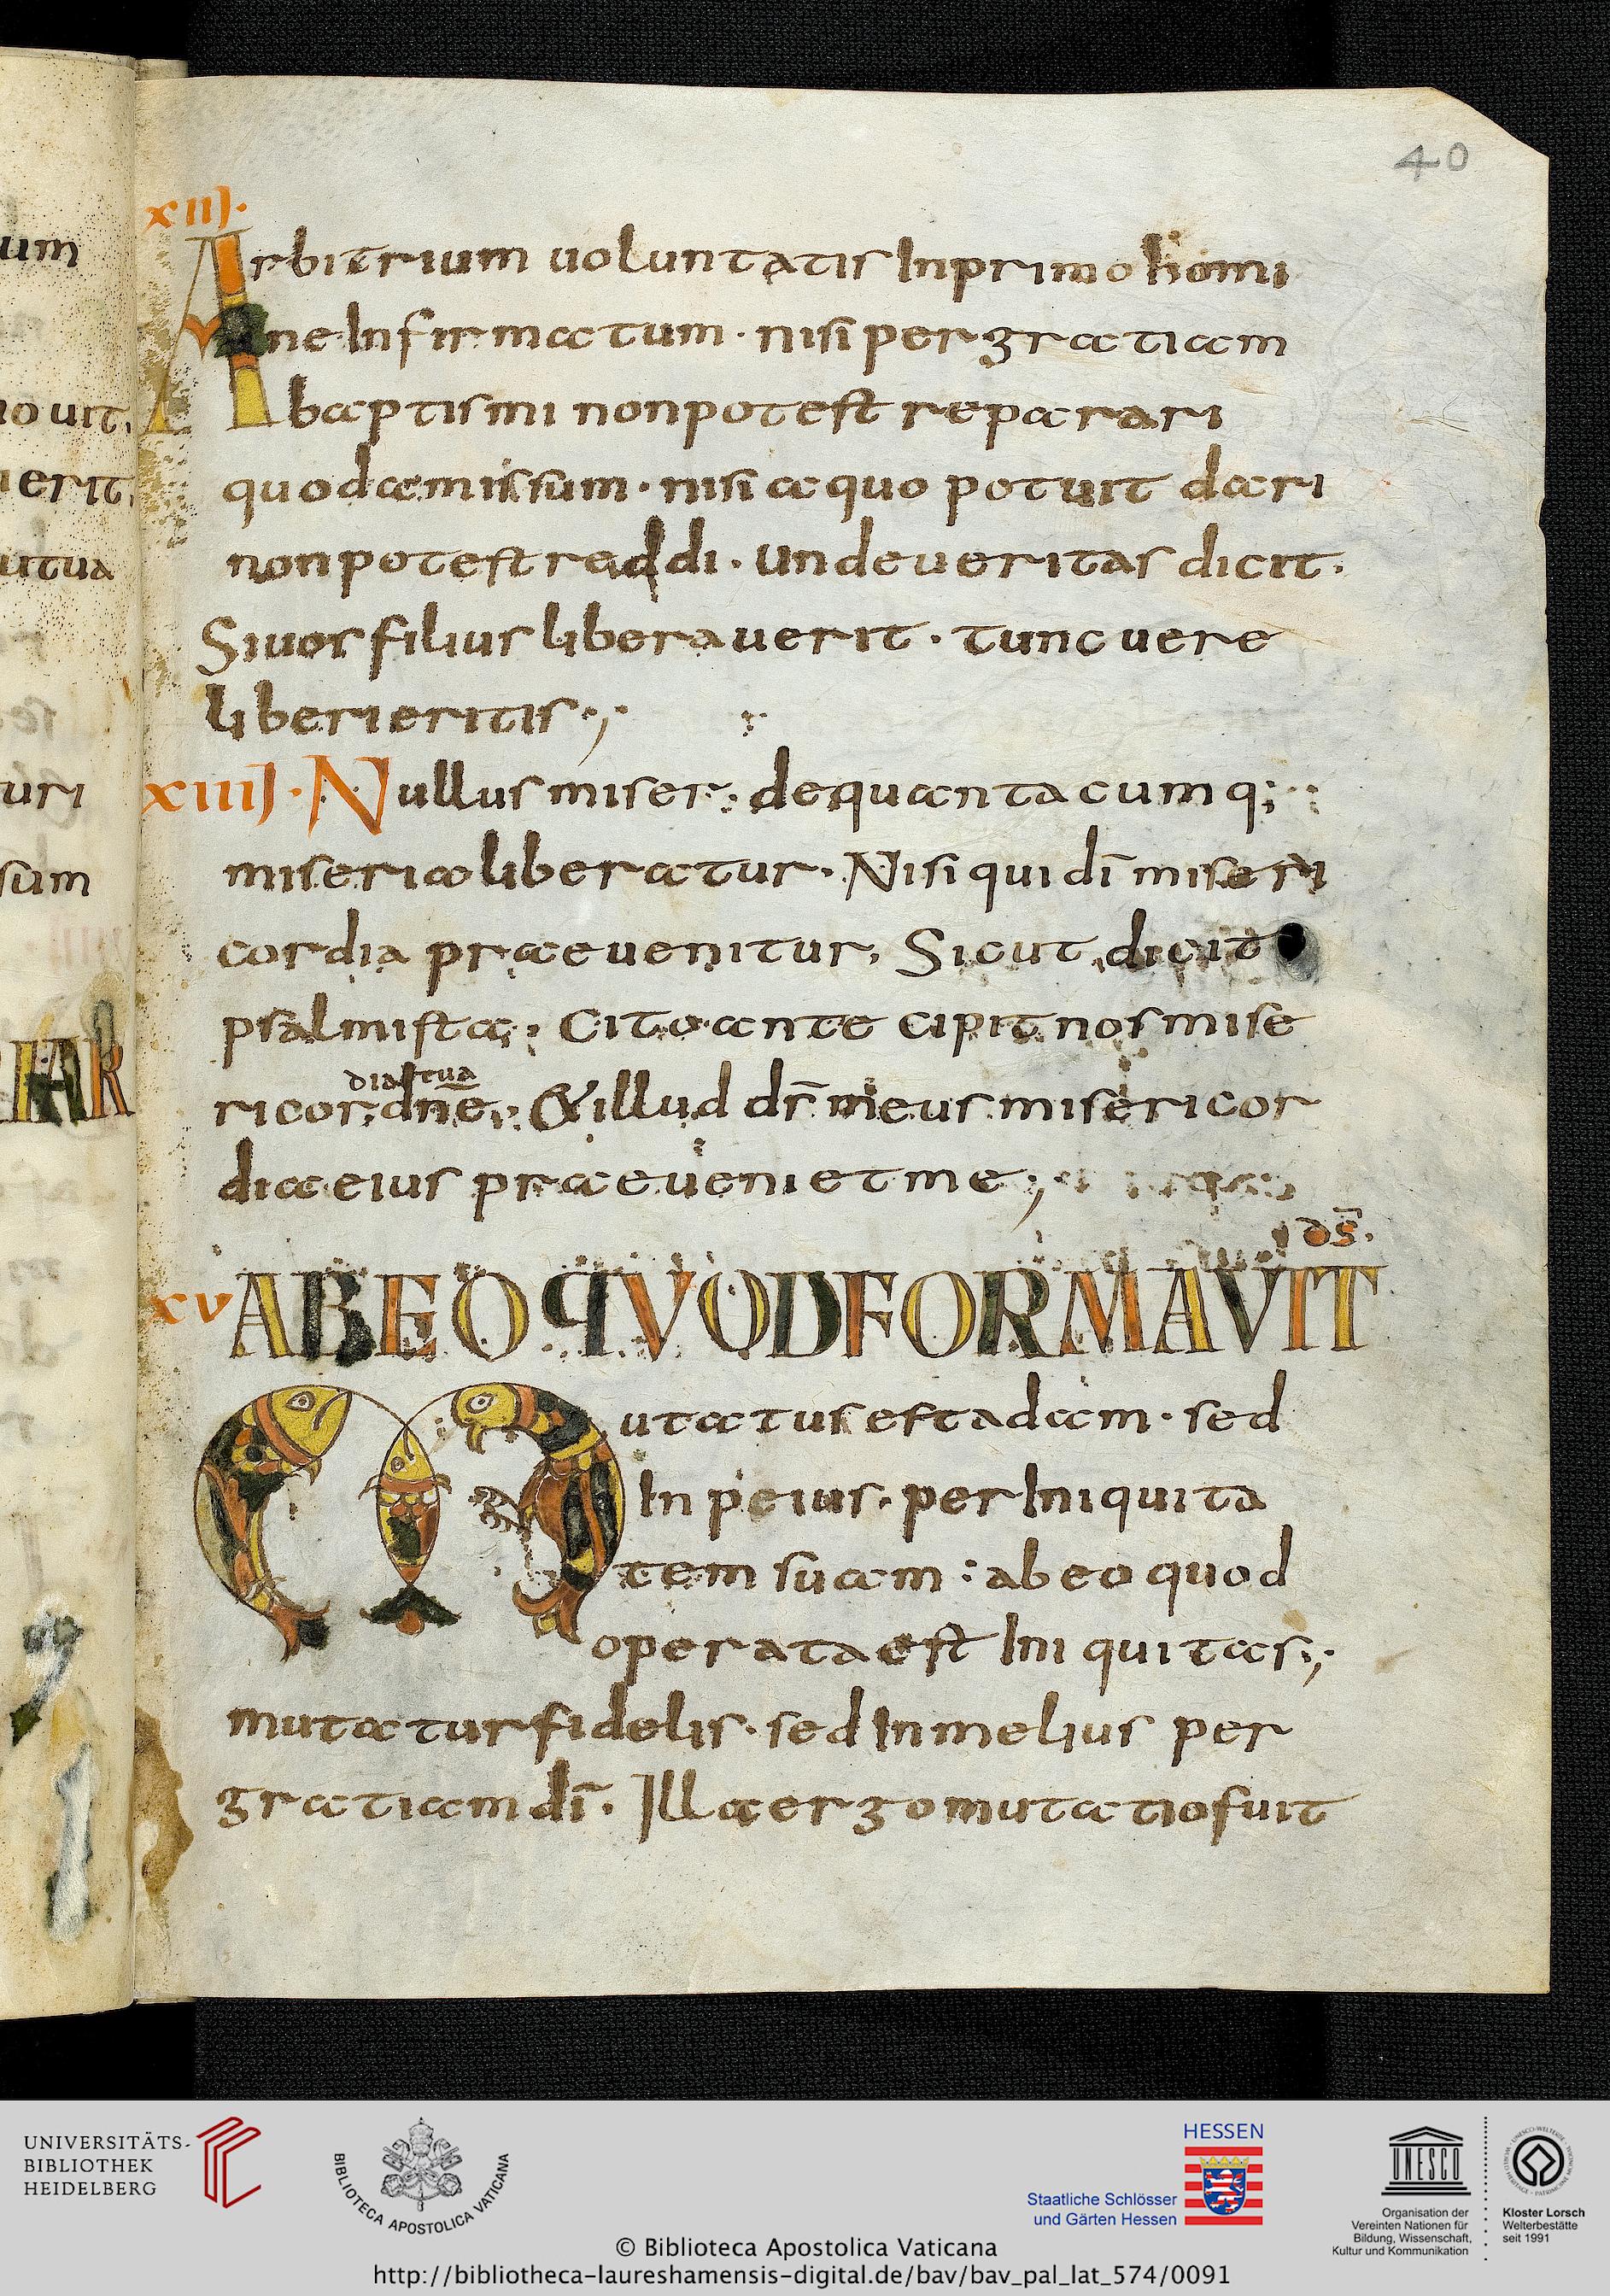 um
iouit.
uerit.
utua
uri
sum
HAR
40
XIIJ.
Arbitrium uoluntatis Inprimo homi
ne Infirmatum · nisi per gratiam
baptismi non potest reparari
quod amissum · nisi a quo potuit dari
non potest reddi · Unde ueritas dicit ·
Si uos filius liberauerit · tunc uere
liberi eritis ;
XIIIJ · Nullus miser ; de quantacumq;
miseria liberatur · Nisi qui dī miseri
cordia praeuenitur, Sicut dicit
psalmista ; Cito ante cipit nos mise
dia tua
ricor dn̄e ; & illud dr̄ meus misericor
dia eius praeueniet me ;
ds̄.
XV ABEO QVOD FORMAVIT
Mutatus est adam · sed
In peius · per Iniquita
tem suam : ab eo quod
operata est Iniquitas ;
mutatur fidelis · sed In melius per
gratiam dī · Illa ergo mutatio fuit
UNIVERSITÄTS-
BIBLIOTHEK
HEIDELBERG
BIBLIOTECA APOSTOLICA VATICANA
HESSEN
Staatliche Schlösser
und Gärten Hessen
UNESCO
Organisation der
Vereinten Nationen für
Bildung, Wissenschaft,
Kultur und Kommunikation
Kloster Lorsch
Welterbestätte
seit 1991
© Biblioteca Apostolica Vaticana
http://bibliotheca-laureshamensis-digital.de/bav/bav_pal_lat_574/0091